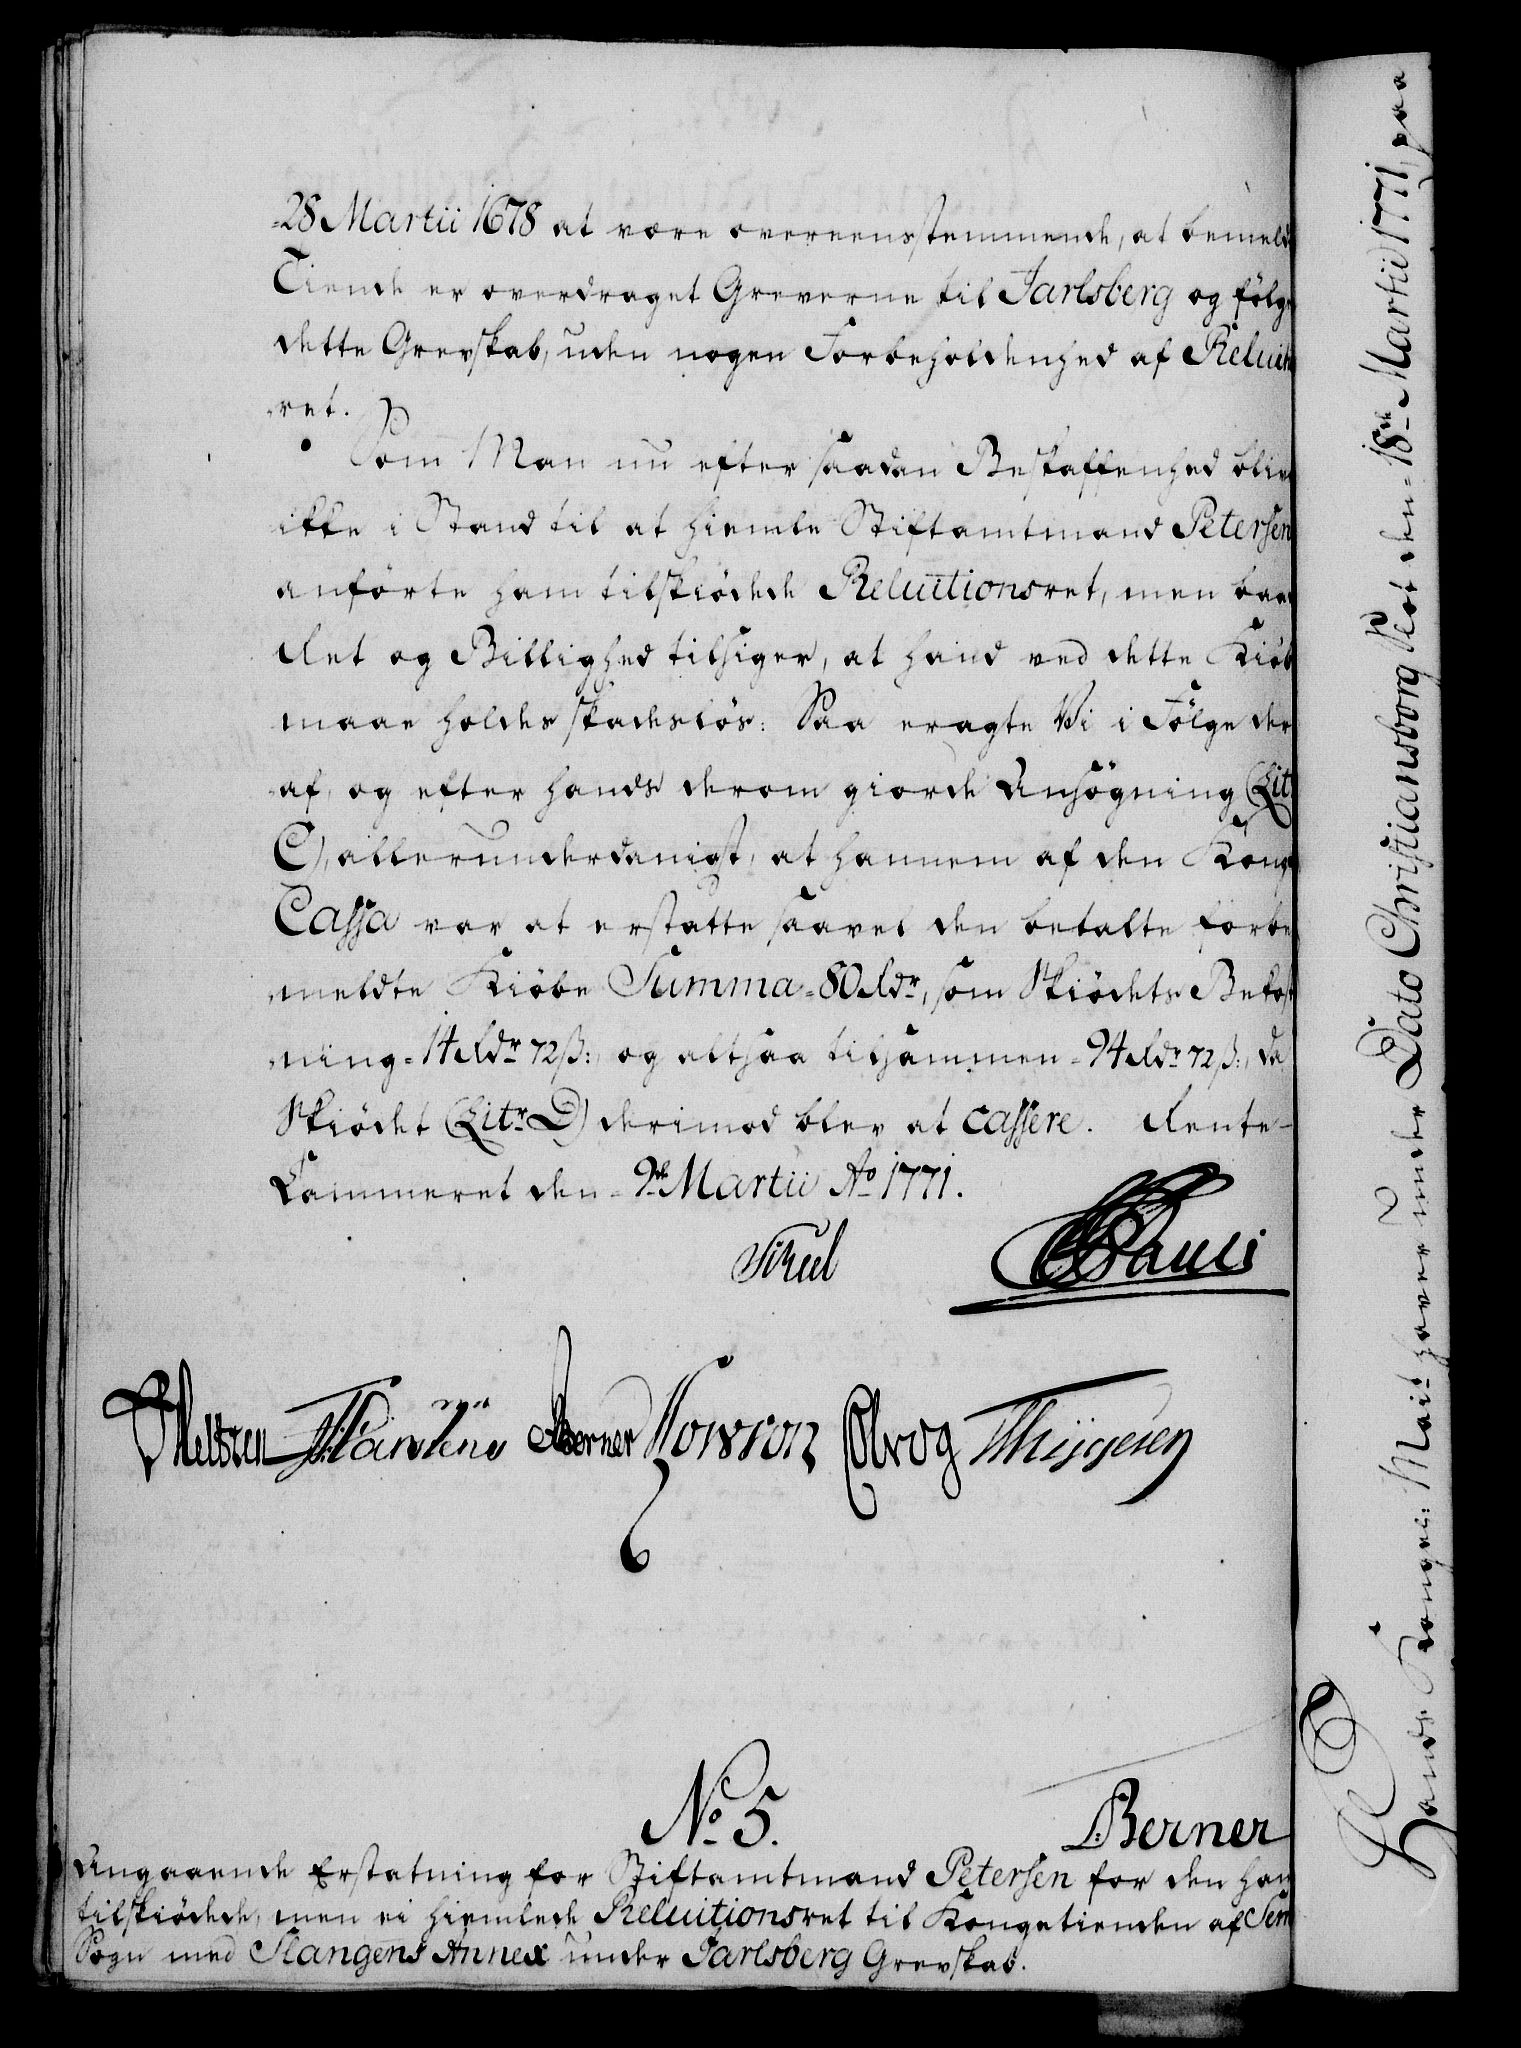 28 Martii 1678 at være overeensstemmende, at bemeld
Tiende er overdraget Greverne til Jarlsberg og følg
dette Grevskab, uden nogen Forbeholdenhed af Reluit
ret.
Som Man nu efter saadan Beskaffenhed bliv
ikke i Stand til at hiemle Stiftamtmand Petersen
anførte ham tilskiødede Reluitionsret, men baa
Ret og Billighed tilsiger, at hand ved dette Kiøb
maae holdes skadesløs: Saa eragte Vi i Følge der
af, og efter hands derom giorde Ansøgning (Lit:
C), allerunderdanigst, at hannem af den Kong
Cassa var at erstatte saavel den betalte forbe
meldte Kiøbe Summa = 80 Rdr, som Skiødets Bekost
ning = 14 Rdr 72 ß:, og altsaa tilsammen = 94 Rdr 72 ß:, da
Skiødet (Litr D) derimod blev at cassere. Rente-
Cammeret den = 9de Martii Ao 1771.
Pauli
Berner Kowron Thygesen
No 5.
Berner
Angaaende Erstatning for Stiftamtmand Petersen for den ham
tilskiødede, men ei hiemlede Reluitionsret til Kongetienden af Sem
Sogn med Slangens Annex under Jarlsberg Grevskab.
Hands Kongel: Mait: haver under Dato Christiansborg Slot den = 18de Martii 1771, paa